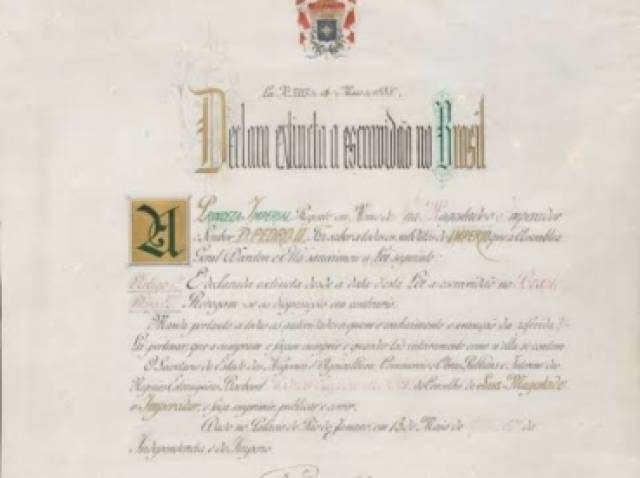 Lei N. 3353 de 13 de Maio de 1888.
Declara extincta a escravidão no Brasil
A PRINCEZA IMPERIAL Regente em Nome de Sua Magestade o Imperador
o Senhor D. PEDRO II, Faz saber a todos os subditos do IMPERIO que a Assembléa
Geral Decretou e Ella sanccionou a Lei seguinte
Artigo É declarada extincta desde a data desta Lei a escravidão no Brazil
Revogam-se as disposições em contrario.
Manda portanto a todas as autoridades a quem o conhecimento e execução da referida
Lei pertencer, que a cumpram e façam cumprir e guardar tão inteiramente como nella se contem
O Secretario de Estado dos Negocios d'Agricultura, Commercio e Obras Publicas e Interino dos
Negocios Estrangeiros, Bacharel do Conselho de Sua Magestade
o Imperador, o faça imprimir, publicar e correr.
Dado no Palacio do Rio de Janeiro, em 13 de Maio de da
Independencia e do Imperio.